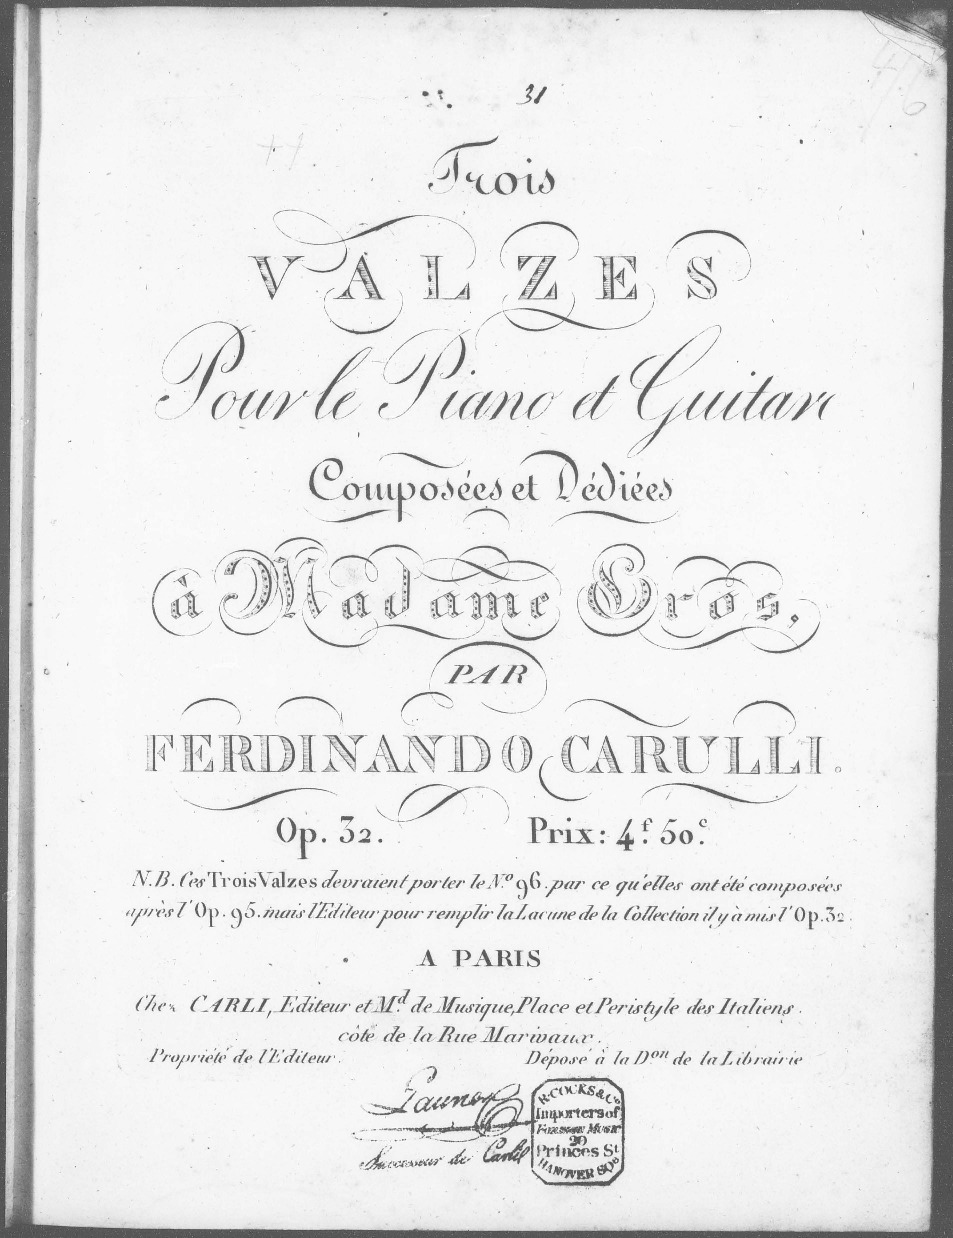 31
Trois
VALZES
Pour le Piano et Guitare
Composées et Dédiées
à Madame Gros,
PAR
FERDINANDO CARULLI.
Op. 32. Prix: 4f. 50c.
N.B. Ces Trois Valzes devraient porter le No. 96. par ce qu'elles ont été composées
après l'Op. 95. mais l'Editeur pour remplir la Lacune de la Collection il y à mis l'Op. 32.
A PARIS
Chez CARLI, Editeur et Md. de Musique, Place et Peristyle des Italiens.
côté de la Rue Marivaux.
Propriété de l'Editeur. Déposé à la Don de la Librairie
Launer
Successeur de Carli
R. COCKS & Co
Importers of
FOREIGN MUSIC
20
Princes St
HANOVER SQe